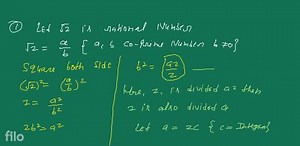 ① Let √2 is rational Number
√2 = a/b { a, b Co-Prime Number b ≠ 0 }
Square both Side
(√2)² = (a/b)²
2 = a²/b²
2b² = a²
b² = a²/2
here, 2, is divided a² then
2 is also divided a
Let a = 2c { c = Integer }
filo